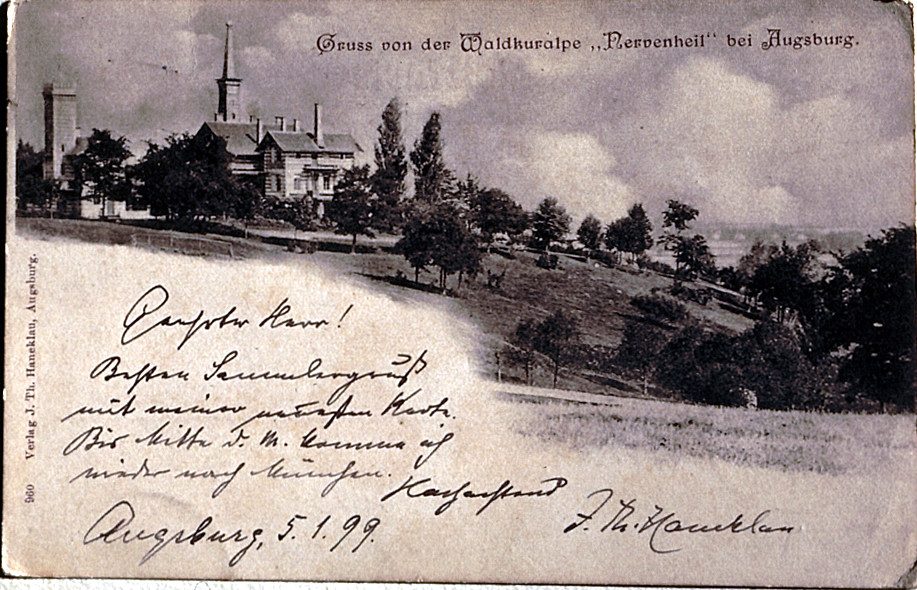 Gruss von der Waldkuralpe „Nervenheil“ bei Augsburg.
Geehrter Herr!
Besten Sammlergruß
mit meiner neuesten Karte.
Bis Mitte d. M. komme ich
wieder nach München.
Hochachtend
J. Th. Haneklau
Augsburg, 5.1.99.
960 Verlag J. Th. Haneklau, Augsburg.